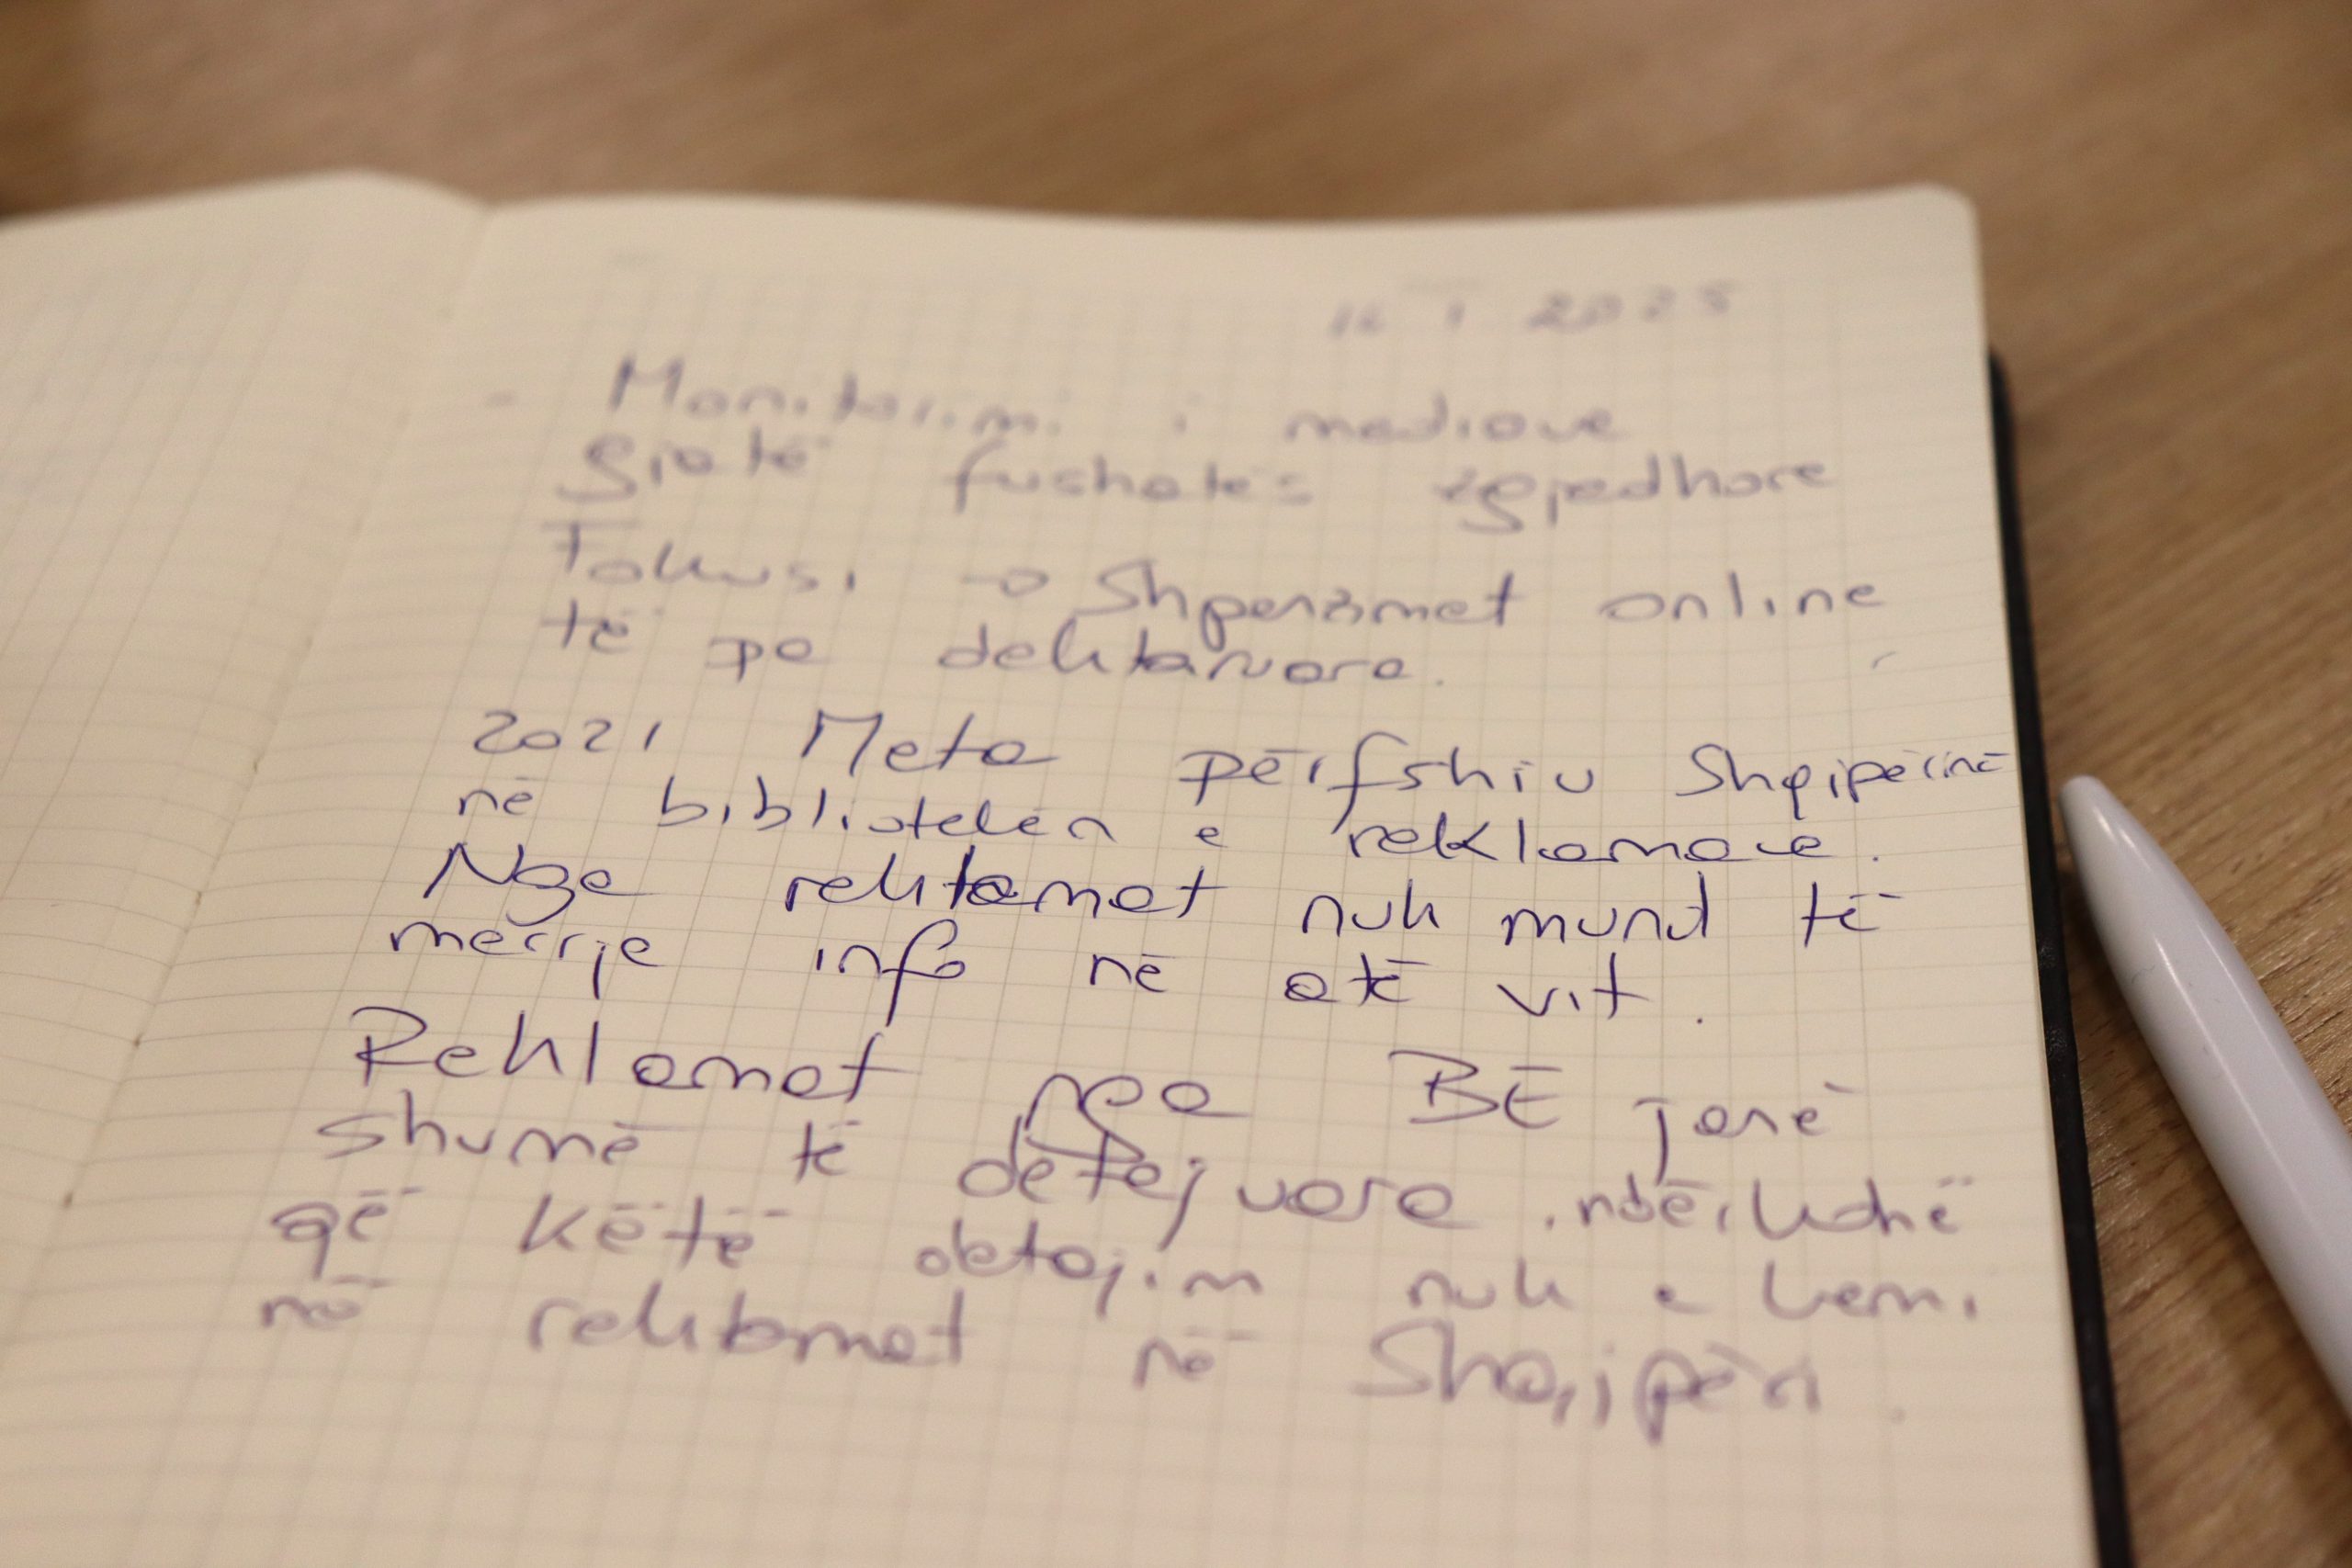 16 I 2025
- Monitorimi i mediave
gjatë fushatës zgjedhore
Fokusi → Shpenzimet online
të pa deklaruara.
2021 Meta përfshiu Shqipërinë
në bibliotekën e reklamave.
Nga reklamat nuk mund të
merrje info në atë vit.
Reklamat nga BE janë
shumë të detajuara, ndërkohë
që këtë detajim nuk e kemi
në reklamat në Shqipëri.